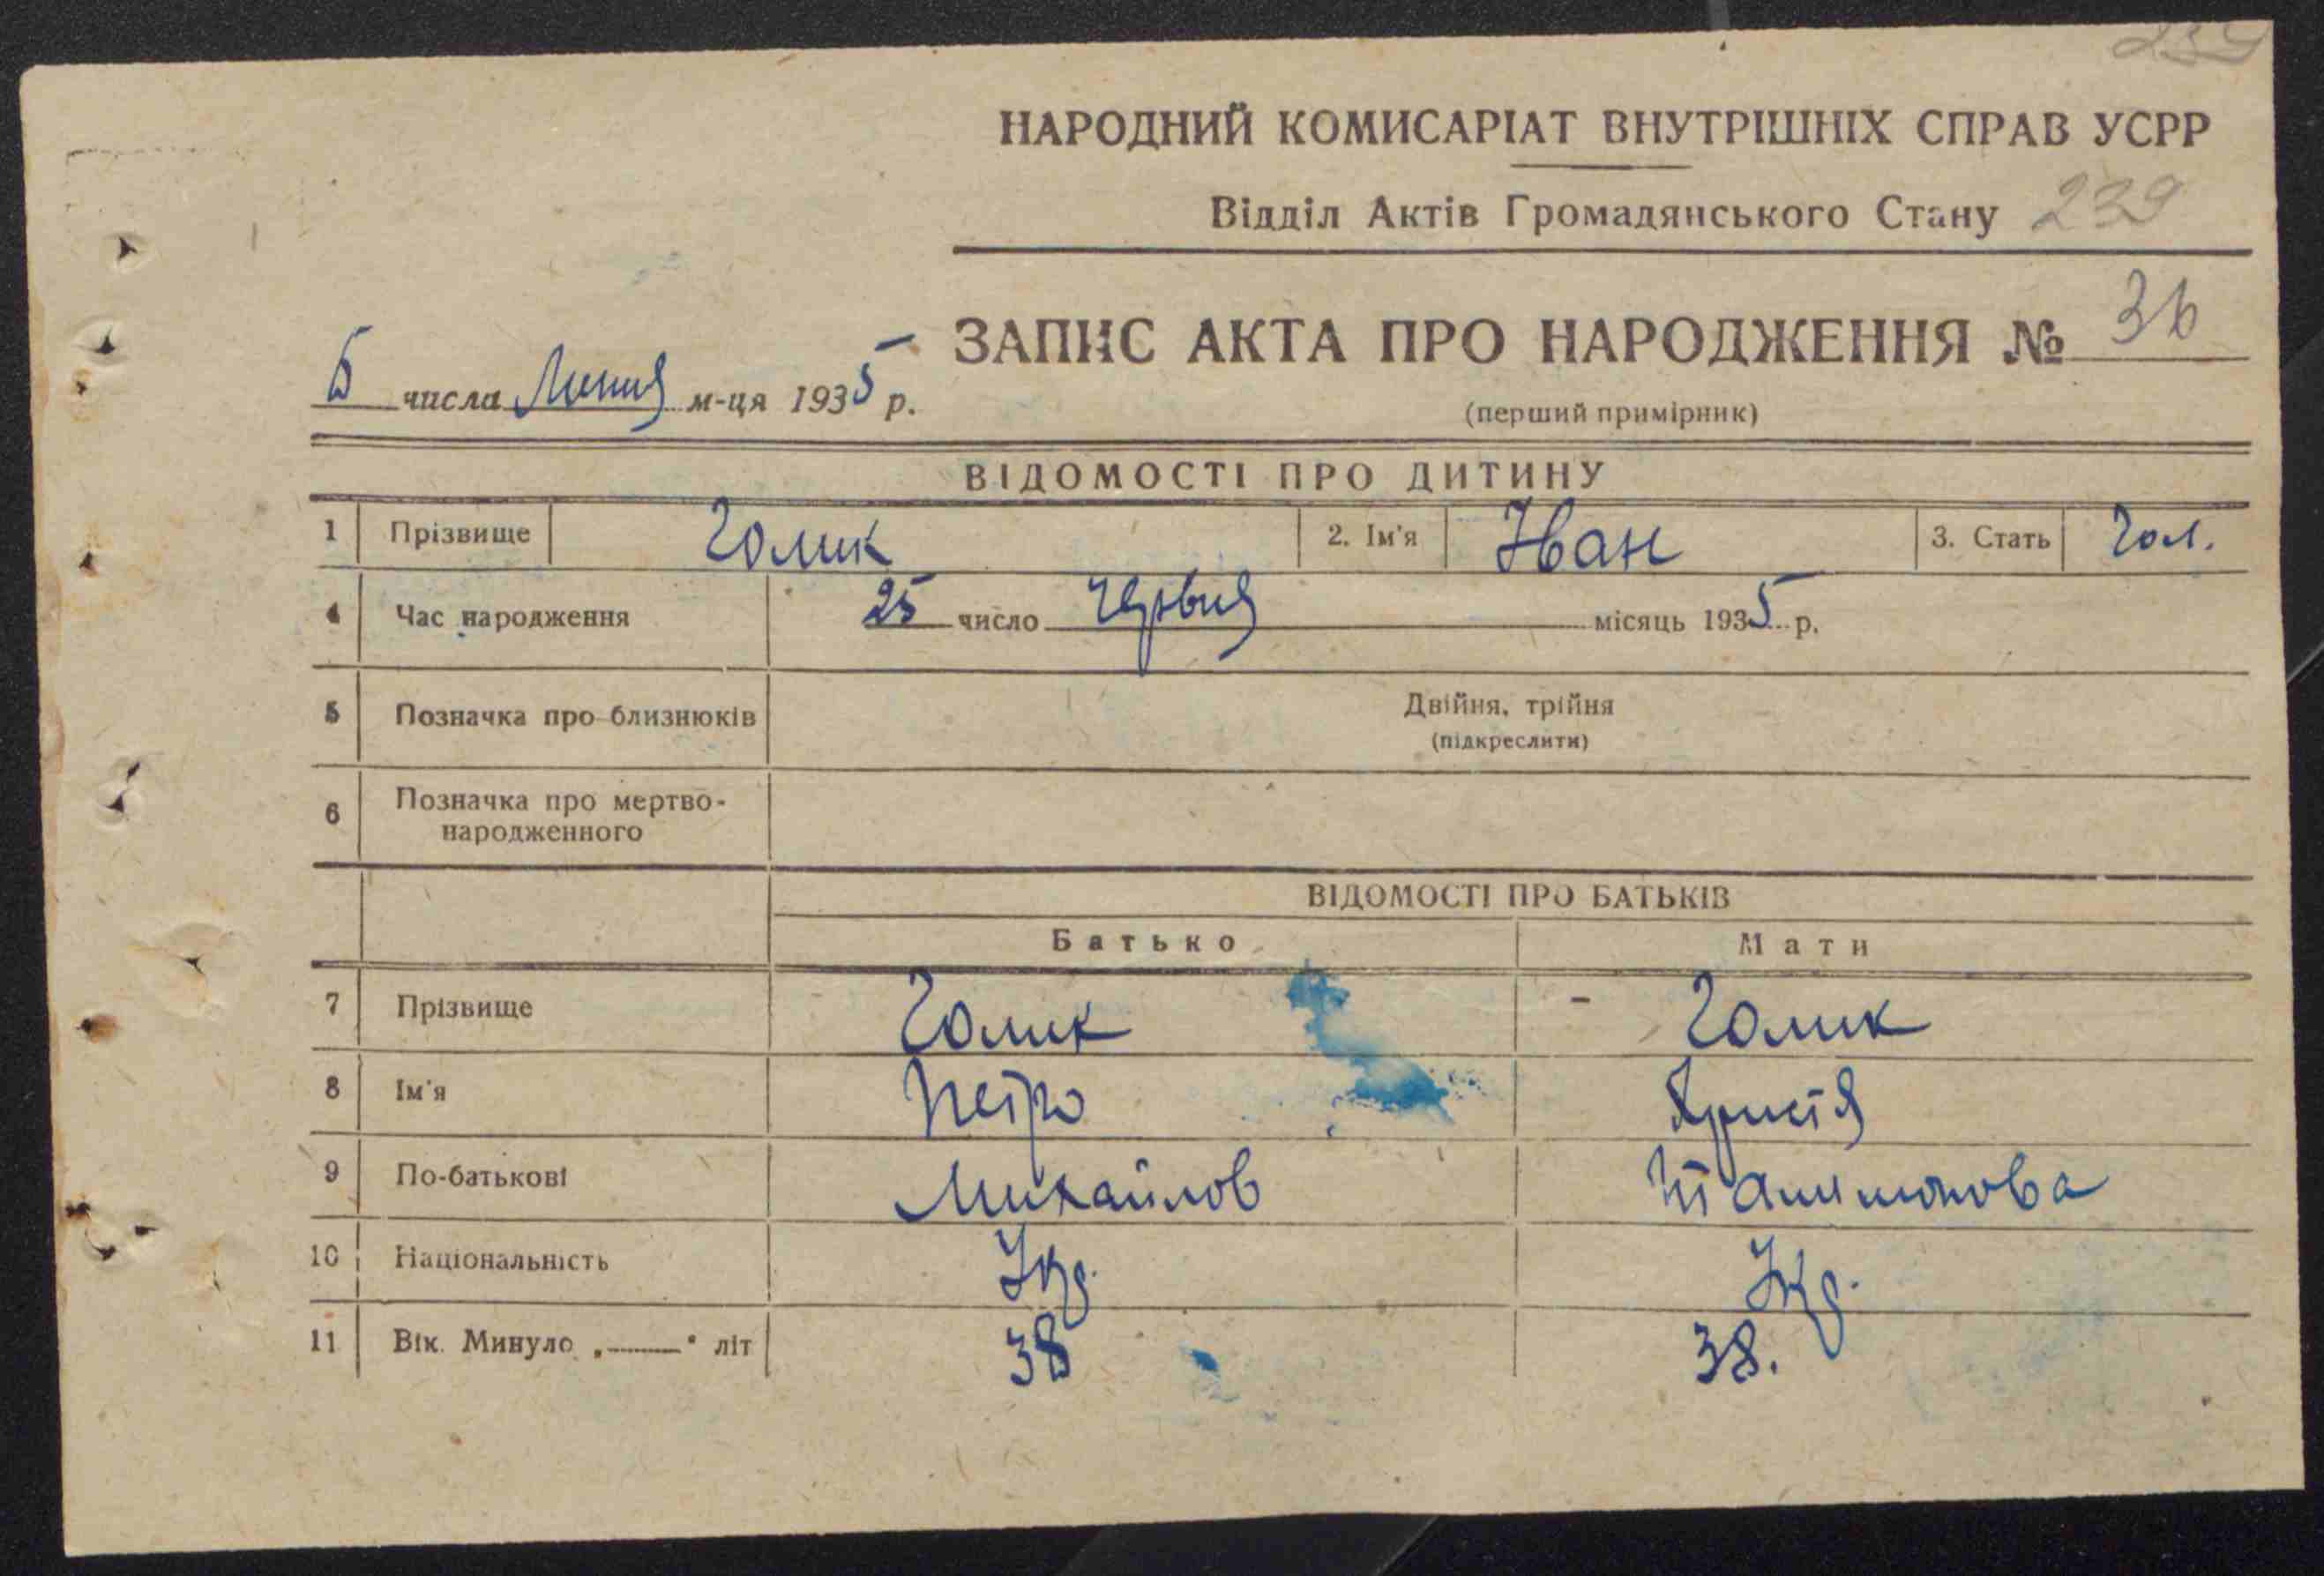 239
НАРОДНИЙ КОМИСАРІАТ ВНУТРІШНІХ СПРАВ УСРР
Відділ Актів Громадянського Стану 239
ЗАПИС АКТА ПРО НАРОДЖЕННЯ № 36
числа Липня м-ця 1935 р.
(перший примірник)
ВІДОМОСТІ ПРО ДИТИНУ
1 Прізвище Голик 2. Ім'я Іван 3. Стать Чол.
4 Час народження 25 число Червня місяць 1935 р.
5 Позначка про близнюків Двійня, трійня
(підкреслити)
6 Позначка про мертво-
народженного
ВІДОМОСТІ ПРО БАТЬКІВ
Батько Мати
7 Прізвище Голик - Голик
8 Ім'я Петро Христя
9 По-батькові Михайлов
10 Національність Укр. Укр.
11 Вік. Минуло „——" літ 38 38.